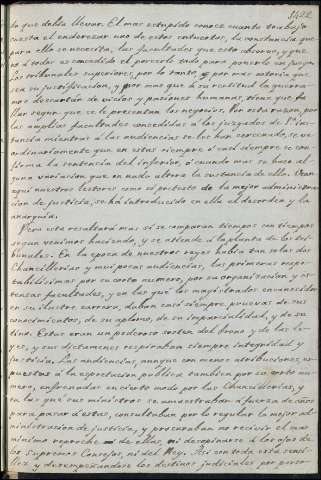 1422
lo que debia llevar. El mas estupido conoce cuanto trabajo
cuesta el enderezar uno de estos entuertos, la constancia que
para ello se necesita, las facultades que esto absorve, y que
no á todos es concedido el poseerlo todo para ponerlo en juego.
Los tribunales superiores, por lo tanto, y por mas notoria que
sea su justificacion, y por mas que á su rectitud la quera-
mos descartar de vicios y pasiones humanas, tienen que fa-
llar segun que se le presentan los negocios. Por esta razon, por
las amplias facultades concedidas á los juzgados de 1ª ins-
tancia mientras á las audiencias se les han cercenado, se ve
ordinariamente que en estas siempre ó casi siempre se con-
firma la sentencia del inferior, ó cuando mas se hace al-
guna variacion que en nada altera la sustancia de ella. Vean
aqui nuestros lectores como só pretesto de la mejor administra-
cion de justicia, se há introducido en ella el desorden y la
anarquía.
Pero esto resaltará mas si se comparan tiempos con tiempos
segun venimos haciendo, y se atiende á la planta de los tri-
bunales. En la epoca de nuestros reyes habia tan solo dos
Chancillerias y muy pocas audiencias, las primeras respe-
tabilísimas por su corto numero, por su organizacion y es-
tensas facultades, y en las que los magistrados encanecidos
en su ilustre carrera, daban casi siempre pruevas de sus
conocimientos, de su aplomo, de su imparcialidad, y de su
tino. Estas eran un poderoso sosten del trono y de las le-
yes, y sus dictamenes respiraban siempre integridad y
justicia. Las audiencias, aunque con menos atribuciones,
puestas á la espectacion publica tambien por su corto nu-
mero, enfrenadas en cierto modo por las Chancillerias, y
en las que sus ministros se amaestraban á fuerza de años
para pasar á estas, consultaban por lo regular la mejor ad-
ministracion de justicia, y procuraban no recivir el mas
minimo reproche de ellas, ni desopinarse á los ojos de
los supremos Consejos, ni del Rey. Asi con toda esta senci-
llez y desempeñandose los destinos judiciales por perso-